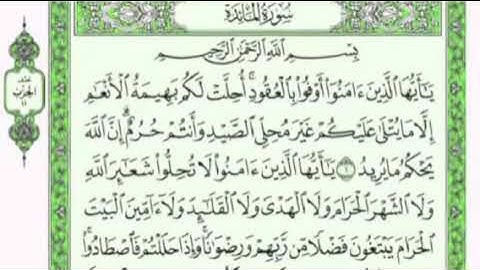 سُورَةُ المَائِدَةِ
بِسْمِ اللَّهِ الرَّحْمَٰنِ الرَّحِيمِ
يَٰٓأَيُّهَا الَّذِينَ ءَامَنُوٓا۟ أَوْفُوا۟ بِالْعُقُودِ ۚ أُحِلَّتْ لَكُم بَهِيمَةُ الْأَنْعَٰمِ
إِلَّا مَا يُتْلَىٰ عَلَيْكُمْ غَيْرَ مُحِلِّي الصَّيْدِ وَأَنتُمْ حُرُمٌ ۗ إِنَّ اللَّهَ
يَحْكُمُ مَا يُرِيدُ ۝١ يَٰٓأَيُّهَا الَّذِينَ ءَامَنُوا۟ لَا تُحِلُّوا۟ شَعَٰٓئِرَ اللَّهِ
وَلَا الشَّهْرَ الْحَرَامَ وَلَا الْهَدْىَ وَلَا الْقَلَٰٓئِدَ وَلَآ ءَآمِّينَ الْبَيْتَ
الْحَرَامَ يَبْتَغُونَ فَضْلًا مِّن رَّبِّهِمْ وَرِضْوَٰنًا ۚ وَإِذَا حَلَلْتُمْ فَاصْطَادُوا۟ ۚ
نصف
الحزب
١١